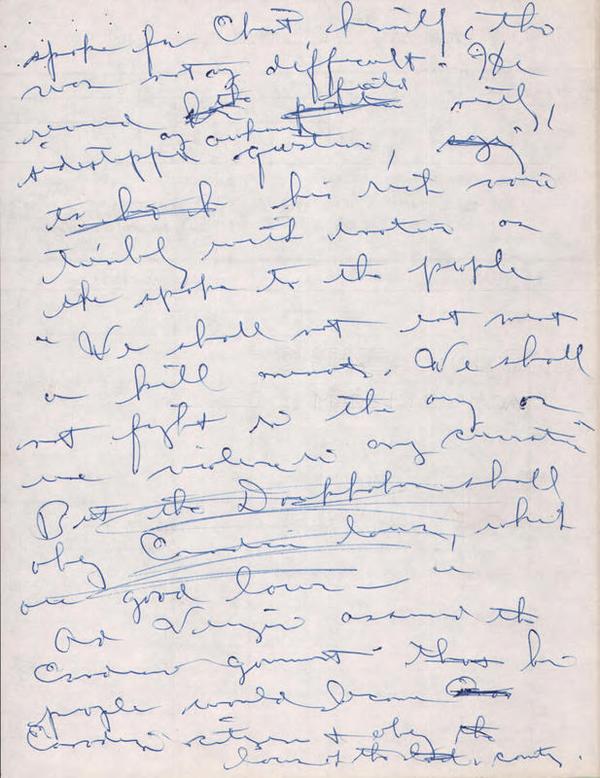 spoke for Christ himself, tho
was not as difficult. He
around field with,
sidestepped awkward
question,
his rich voice
trembly with emotion as
he spoke to the people
"We shall not eat meat
or kill animals. We shall
not fight in the army or
use violence in any
But the Doukhobor shall
obey Canadian laws, which
are good laws — "
As Verigin assured the
Canadian that his
people would become
Canadian citizens & obey the
laws of the country.